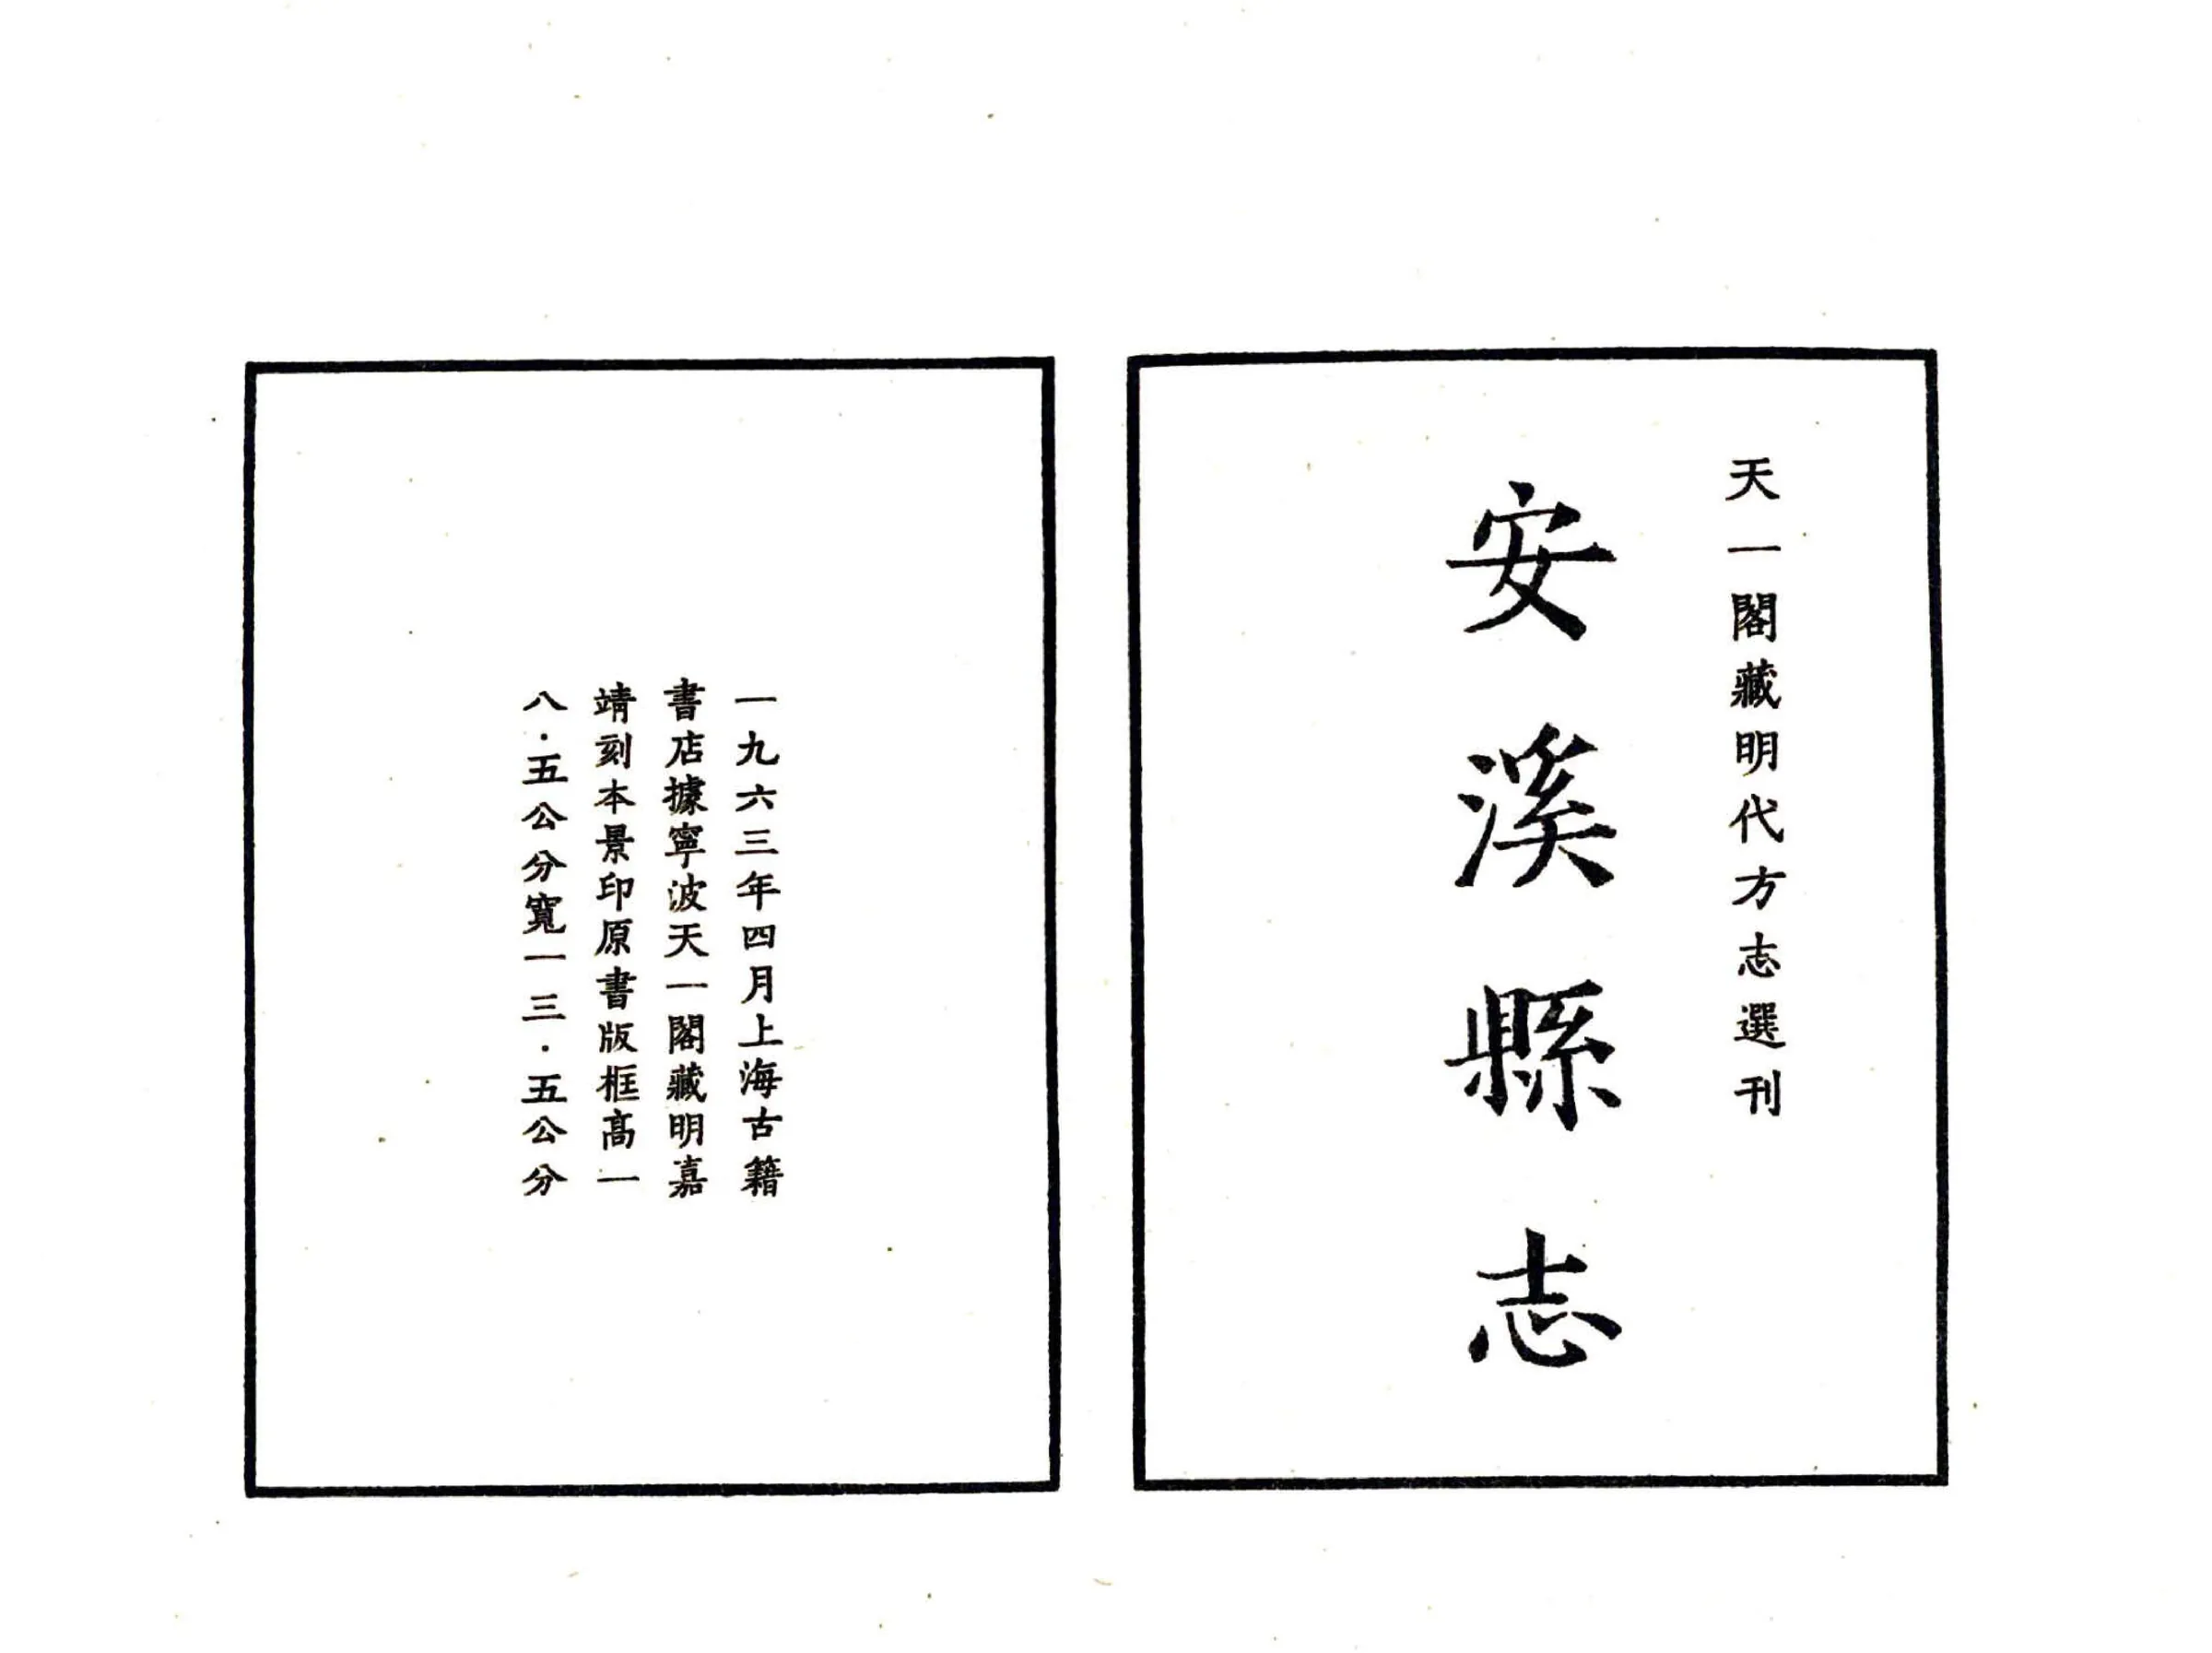 天一閣藏明代方志選刊
安溪縣志
一九六三年四月上海古籍
書店據寧波天一閣藏明嘉
靖刻本景印原書版框高一
八·五公分寬一三·五公分